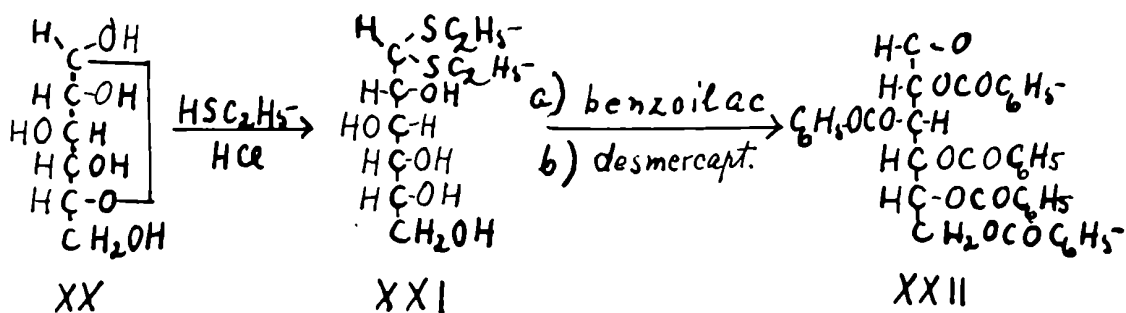 H OH
C
H C-OH
HO C H
H C OH
H C-O
CH2OH
XX
HSC2H5
HCl
H SC2H5
C SC2H5
H-C-OH
HO C-H
H C-OH
H C-OH
CH2OH
XXI
a) benzoilac
b) desmercapt.
H-C-O
H C OCOC6H5
C6H5OCO-C-H
H C OCOC6H5
H C-OCOC6H5
CH2OCOC6H5
XXII